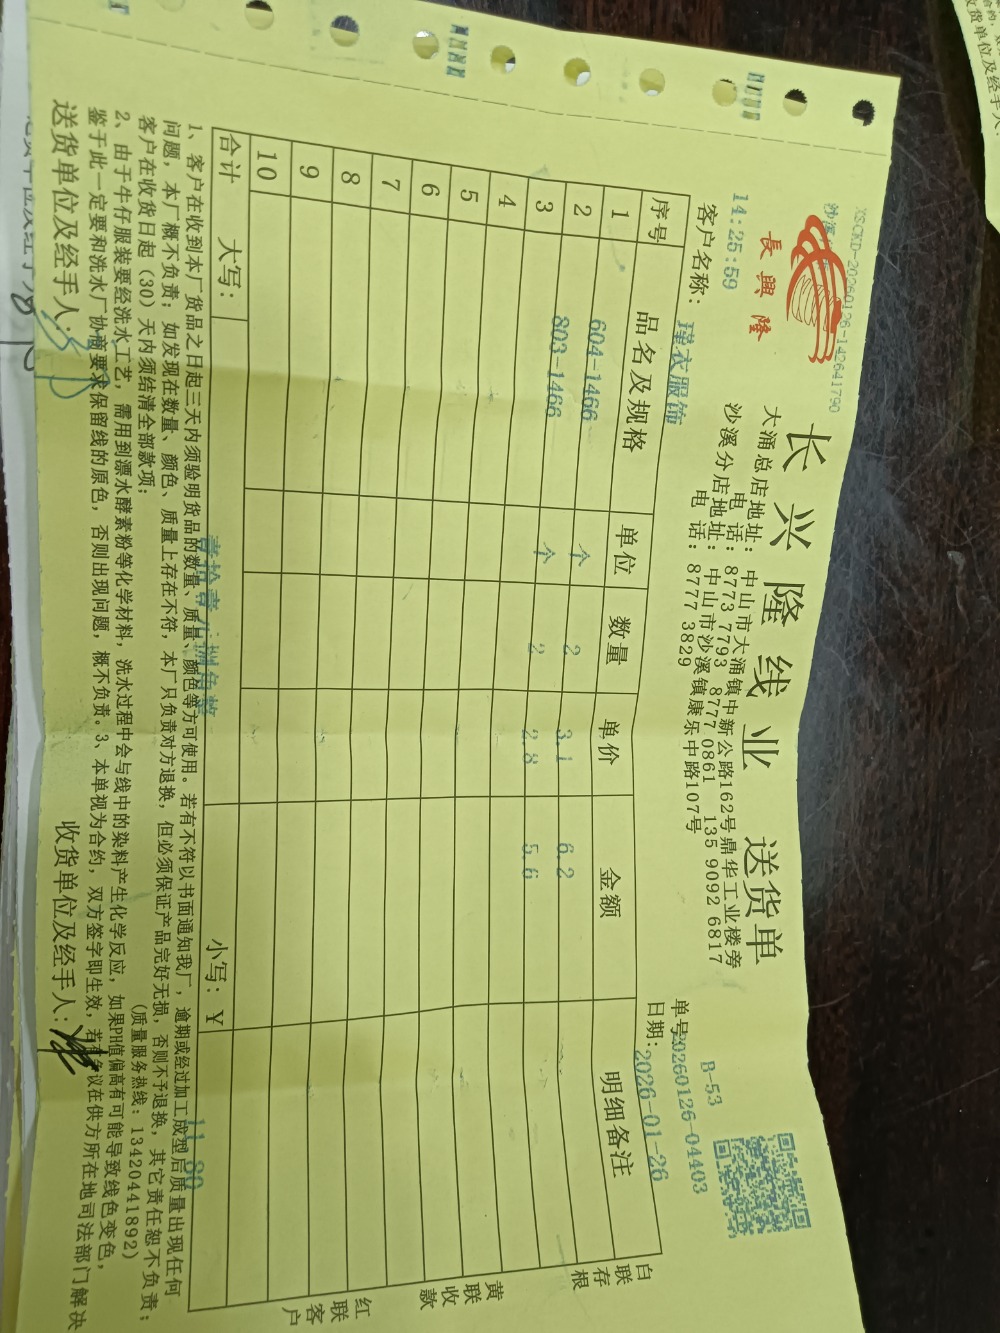 XSCKD-20260126-142641790
沙溪
長興隆
长兴隆线业 送货单
大涌总店地址: 中山市大涌镇中新公路162号鼎华工业楼旁
电 话: 8773 7793 8777 0861 135 9092 6817
沙溪分店地址: 中山市沙溪镇康乐中路107号
电 话: 8777 3829
B-53
14:25:59
单号20260126-04403
客户名称: 瑾衣服饰
日期: 2026-01-26
序号 品名及规格 单位 数量 单价 金额 明细备注
1 604-1466 个 2 3.1 6.2
2 803-1466 个 2 2.8 5.6
3
4
5
6
7
8
9
10
合计 大写: 壹拾壹元捌角整 小写: ¥ 11.80
白联存根
黄联收款
红联客户
1、客户在收到本厂货品之日起三天内须验明货品的数量、质量、颜色等方可使用。若有不符以书面通知我厂，逾期或经过加工成型后质量出现任何
问题，本厂概不负责；如发现在数量、颜色、质量上存在不符，本厂只负责对方退换，但必须保证产品完好无损，否则不予退换，其它责任恕不负责；
客户在收货日起（30）天内须结清全部款项； (质量服务热线: 13420441892)
2、由于牛仔服装要经洗水工艺，需用到漂水酵素粉等化学材料，洗水过程中会与线中的染料产生化学反应，如果PH值偏高有可能导致线色变色，
鉴于此一定要和洗水厂协商要求保留线的原色，否则出现问题，概不负责。3、本单视为合约，双方签字即生效，若有争议在供方所在地司法部门解决
送货单位及经手人: 收货单位及经手人:
收货单位及经手人